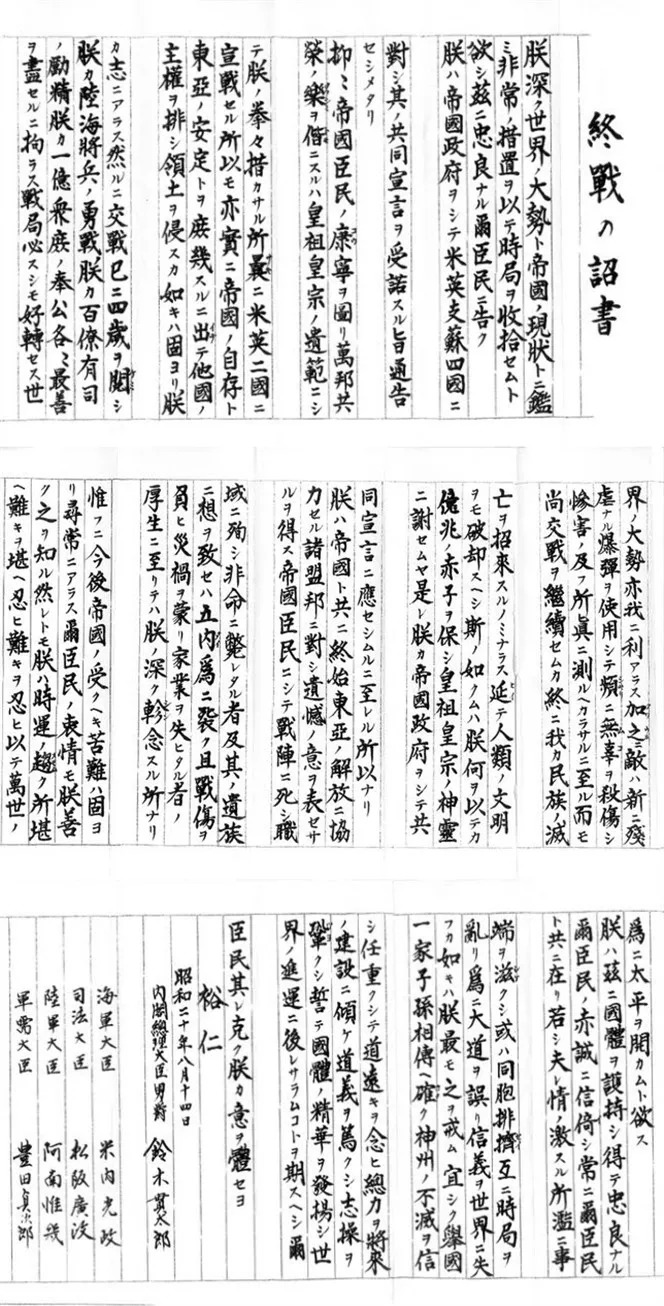 終戰の詔書
朕深ク世界ノ大勢ト帝國ノ現狀トニ鑑
ミ非常ノ措置ヲ以テ時局ヲ收拾セムト
欲シ茲ニ忠良ナル爾臣民ニ告ク
朕ハ帝國政府ヲシテ米英支蘇四國ニ
對シ其ノ共同宣言ヲ受諾スル旨通告
セシメタリ
抑〻帝國臣民ノ康寧ヲ圖リ萬邦共
榮ノ樂ヲ偕ニスルハ皇祖皇宗ノ遺範ニシ
テ朕ノ拳々措カサル所曩ニ米英二國ニ
宣戰セル所以モ亦實ニ帝國ノ自存ト
東亞ノ安定トヲ庶幾スルニ出テ他國ノ
主權ヲ排シ領土ヲ侵スカ如キハ固ヨリ朕
カ志ニアラス然ルニ交戰已ニ四歲ヲ閱シ
朕カ陸海將兵ノ勇戰朕カ百僚有司
ノ勵精朕カ一億衆庶ノ奉公各〻最善
ヲ盡セルニ拘ラス戰局必スシモ好轉セス世
界ノ大勢亦我ニ利アラス加之敵ハ新ニ殘
虐ナル爆彈ヲ使用シテ頻ニ無辜ヲ殺傷シ
慘害ノ及フ所眞ニ測ルヘカラサルニ至ル而モ
尚交戰ヲ繼續セムカ終ニ我カ民族ノ滅
亡ヲ招來スルノミナラス延テ人類ノ文明
ヲモ破却スヘシ斯ノ如クムハ朕何ヲ以テカ
億兆ノ赤子ヲ保シ皇祖皇宗ノ神靈
ニ謝セムヤ是レ朕カ帝國政府ヲシテ共
同宣言ニ應セシムルニ至レル所以ナリ
朕ハ帝國ト共ニ終始東亞ノ解放ニ協
力セル諸盟邦ニ對シ遺憾ノ意ヲ表セサ
ルヲ得ス帝國臣民ニシテ戰陣ニ死シ職
域ニ殉シ非命ニ斃レタル者及其ノ遺族
ニ想ヲ致セハ五內爲ニ裂ク且戰傷ヲ
負ヒ災禍ヲ蒙リ家業ヲ失ヒタル者ノ
厚生ニ至リテハ朕ノ深ク軫念スル所ナリ
惟フニ今後帝國ノ受クヘキ苦難ハ固ヨ
リ尋常ニアラス爾臣民ノ衷情モ朕善
ク之ヲ知ル然レトモ朕ハ時運ノ趨ク所堪
ヘ難キヲ堪ヘ忍ヒ難キヲ忍ヒ以テ萬世ノ
爲ニ太平ヲ開カムト欲ス
朕ハ茲ニ國體ヲ護持シ得テ忠良ナル
爾臣民ノ赤誠ニ信倚シ常ニ爾臣民
ト共ニ在リ若シ夫レ情ノ激スル所濫ニ事
端ヲ滋クシ或ハ同胞排擠互ニ時局ヲ
亂リ爲ニ大道ヲ誤リ信義ヲ世界ニ失
フカ如キハ朕最モ之ヲ戒ム宜シク擧國
一家子孫相傳ヘ確ク神州ノ不滅ヲ信
シ任重クシテ道遠キヲ念ヒ總力ヲ將來
ノ建設ニ傾ケ道義ヲ篤クシ志操ヲ
鞏クシ誓テ國體ノ精華ヲ發揚シ世
界ノ進運ニ後レサラムコトヲ期スヘシ爾
臣民其レ克ク朕カ意ヲ體セヨ
裕仁
昭和二十年八月十四日
內閣總理大臣男爵 鈴木貫太郎
海軍大臣 米內光政
司法大臣 松阪廣政
陸軍大臣 阿南惟幾
軍需大臣 豐田貞次郎